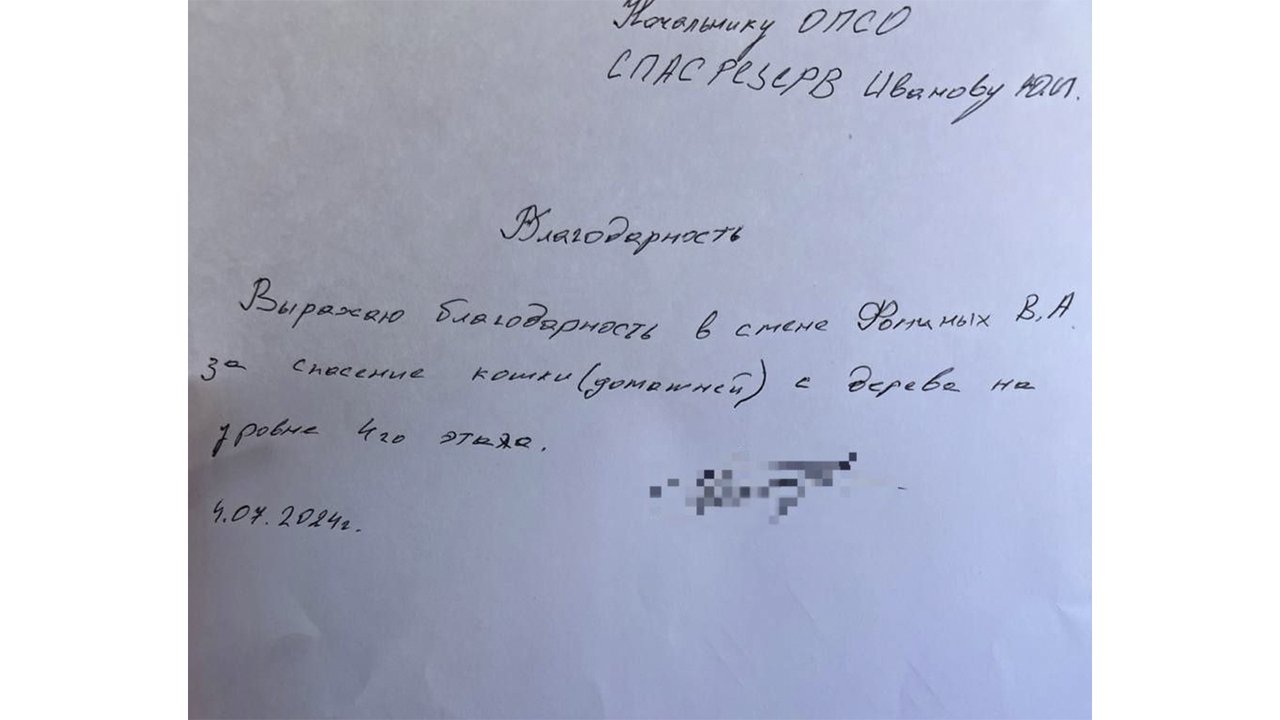 Начальнику ОПСО
СПАСРЕЗЕРВ Иванову Ю.И.
Благодарность
Выражаю благодарность в смене Фоминых В.А.
за спасение кошки (домашней) с дерева на
уровне 4го этажа.
4.07.2024г.